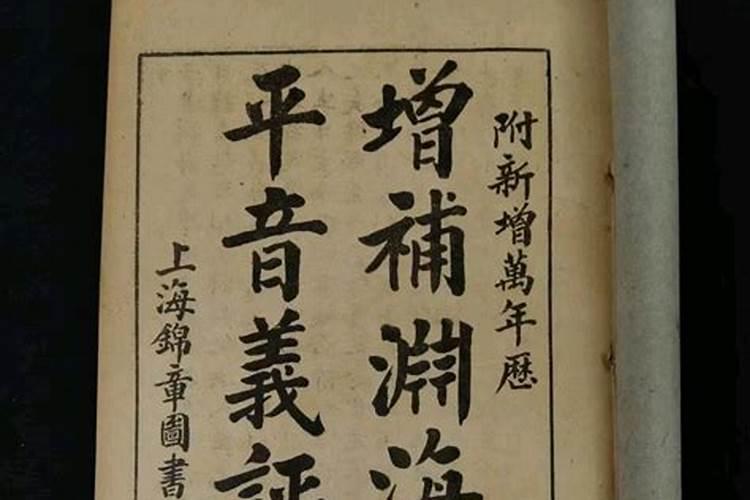 附新增萬年曆
增補淵海
平音義評
上海錦章圖書